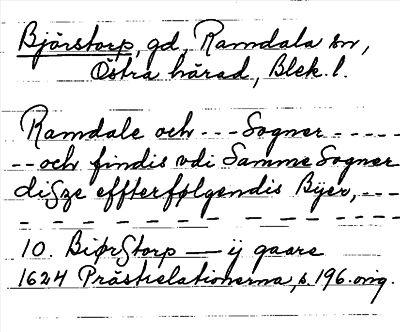 Björstorp, gd, Ramdala sn,
Östra härad, Blek. l.
Ramdale och --- Sogner -----
-- och findis vdi Samme Sogner
disze effterfølgendis Bÿer, ---
- - - - - - - - - - -
10. Biørstorp — ij gaare
1624 Prästrelationerna, s. 196. orig.